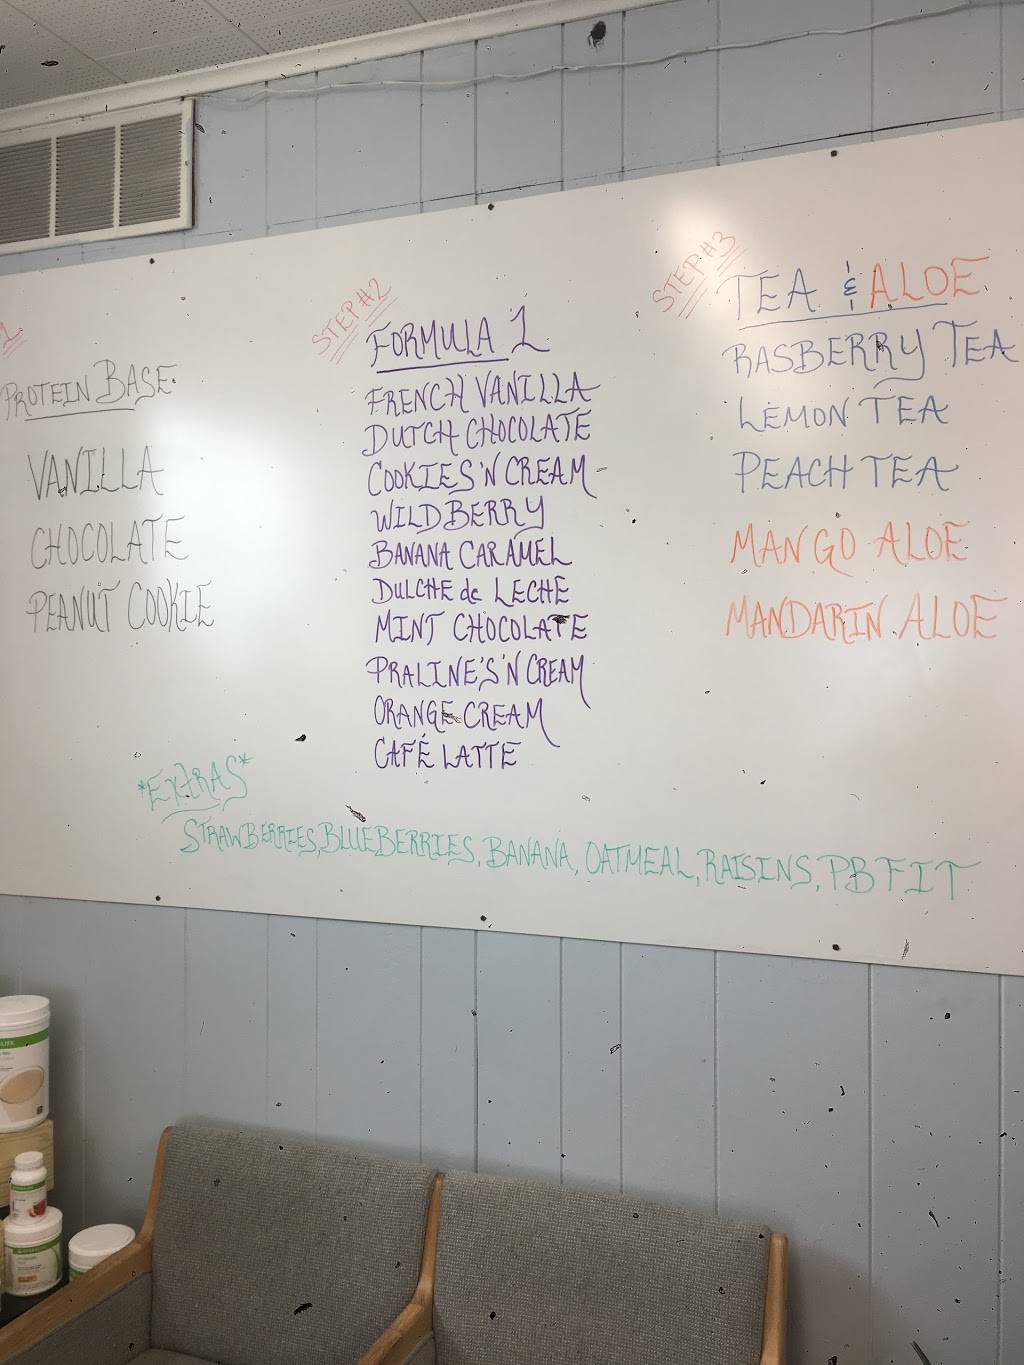 1
PROTEIN BASE
VANILLA
CHOCOLATE
PEANUT COOKIE
STEP #2
FORMULA 1
FRENCH VANILLA
DUTCH CHOCOLATE
COOKIES 'N CREAM
WILDBERRY
BANANA CARAMEL
DULCHE de LECHE
MINT CHOCOLATE
PRALINE'S 'N CREAM
ORANGE CREAM
CAFÉ LATTE
STEP #3
TEA & ALOE
RASBERRY TEA
LEMON TEA
PEACH TEA
MANGO ALOE
MANDARIN ALOE
*EXTRAS*
STRAWBERRIES, BLUEBERRIES, BANANA, OATMEAL, RAISINS, PB FIT